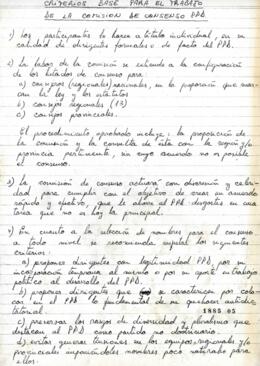 CRITERIOS BASE PARA EL TRABAJO
DE LA COMISION DE CONSENSO PPD.
1) los participantes lo hacen a título individual, en su
calidad de dirigentes formales o de facto del PPD.
2) La labor de la comisión se extiende a la configuración
de los listados de consenso para
a) consejos (regionales) nacionales, en la proporción que marcan
la ley y los estatutos
b) consejos regionales (13)
c) consejos provinciales.
El procedimiento aprobado incluye: la proposición de
la comisión y la consulta de ésta con la región y/o
provincia pertinente, sin cuyo acuerdo no es posible
el consenso.
3) La comisión de consenso actuará con discreción y celeri-
dad para cumplir con el objetivo de crear un acuerdo
rápido y efectivo, que le ahorre al PPD desgastes en una
tarea que no es hoy la principal.
4) En cuanto a la selección de nombres para el consenso
a todo nivel se recomienda respetar los siguientes
criterios:
a) proponer dirigentes con legitimidad PPD, por su
incorporación temprana al mismo o por su aporte en trabajo
político al desarrollo del PPD.
b) proponer dirigentes que se caractericen por colo-
car en el PPD lo fundamental de su quehacer antidic-
tatorial.
1885 05
c) preservar los rasgos de diversidad y pluralismo que
destacan al PPD como partido no doctrinario.
d) evitar generar tensiones en los equipos regionales y/o
provinciales imponiéndoles nombres poco naturales para
ellos.